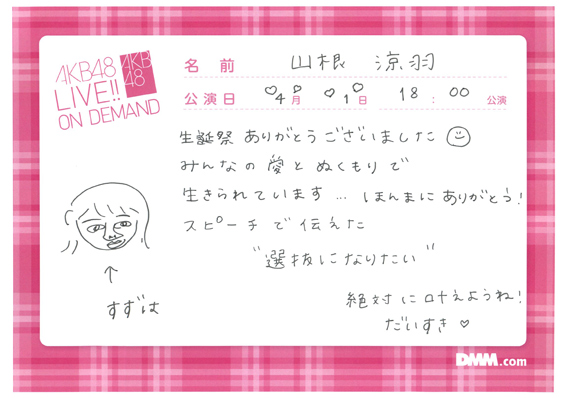 AKB48
LIVE!!
ON DEMAND
AKB
48
名前 山根 涼羽
公演日 4月 1日 18:00 公演
生誕祭 ありがとうございました
みんなの愛とぬくもりで
生きられています… ほんまにありがとう!
スピーチで伝えた
"選抜になりたい"
絶対に叶えようね!
だいすき♡
↑
すずは
DMM.com